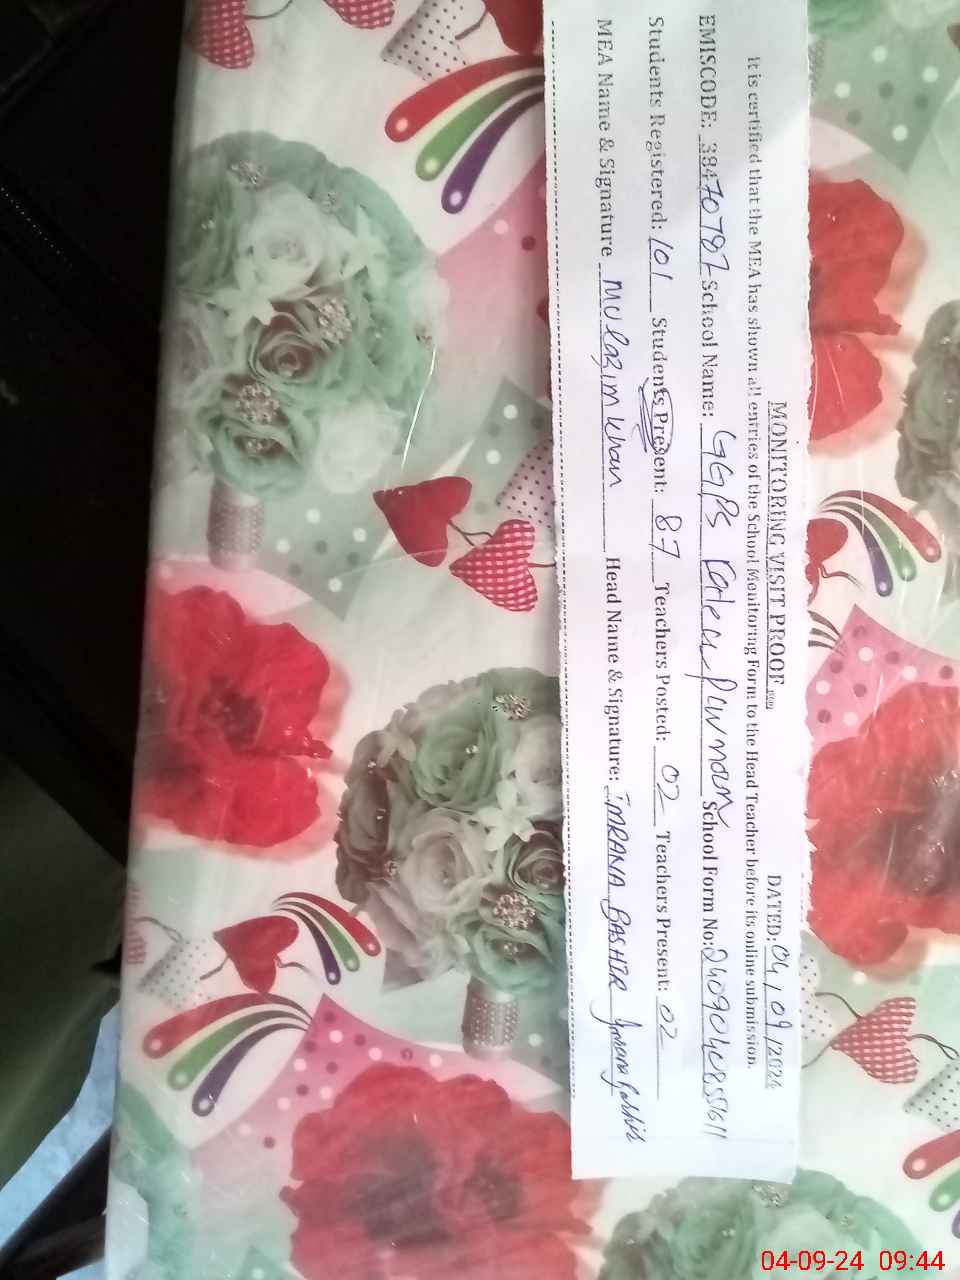 MONITORING VISIT PROOF DATED: 04/09/2024
It is certified that the MEA has shown all entries of the School Monitoring Form to the Head Teacher before its online submission.
EMISCODE: 38470787 School Name: GGPS School Form No:
Students Registered: 101 Students Present: 87 Teachers Posted: 02 Teachers Present: 02
MEA Name & Signature Mulazim Khan Head Name & Signature: IMRANA BASHIR
04-09-24 09:44